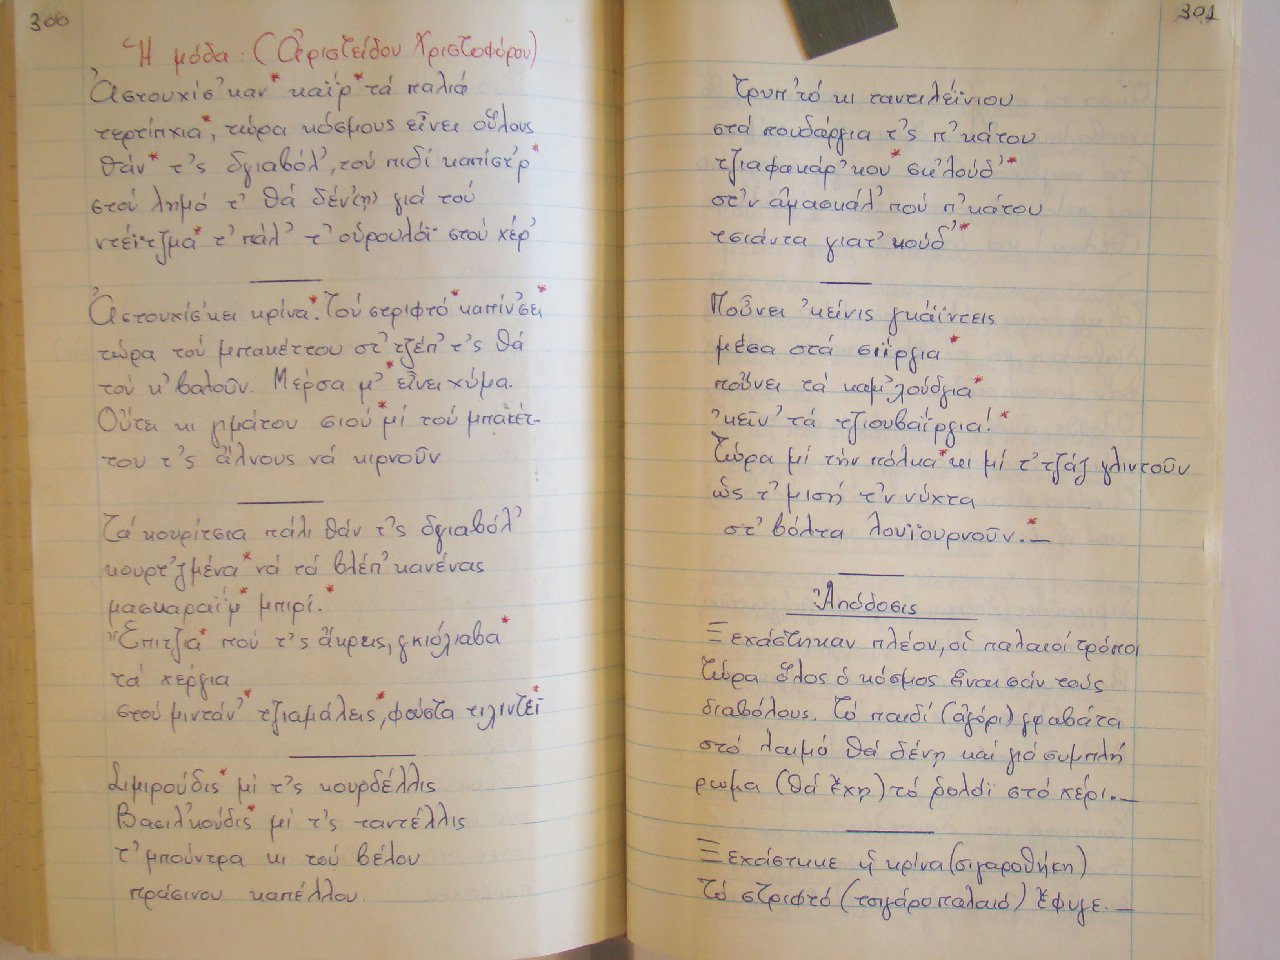 300
Ἡ μόδα: (Ἀριστείδου Χριστοφόρου)
Ἀστουχίσ'καν* καΐρ* τά παλιά
τερτίπχια*, τώρα κόσμους εἶνει οὗλους
θάν* τ'ς δγιαβόλ', τού πιδί καπίστ'ρ*
στού λημό τ' θά δέν(η) γιά τού
ντέϊτζμα* τ' πάλ' τ' οὑρουλόϊ στού χέρ'
Ἀστουχίσ'κει κρίνα*. Τού στριφτό* καπίν'σει*
τώρα τού μπακέττου στ' τζέπ' τ'ς θά
τού κ' βαλοῦν. Μέρσα μ'* εἶνει χύμα.
Οὔτει κι γιμάτου σιού* μί τού μπακέτ-
του τ'ς ἄλνους νά κιρνοῦν
Τά κουρίτσια πάλι θάν τ'ς δγιαβόλ'
κουρτ'ζμένα* νά τά βλέπ' κανένας
μασκαραΐμ* μπιρί.*
Ἐπιτζιά* πού τ'ς ἄκρεις, γκιόλιαβα*
τά χέργια
στού μιντάν'* τζιαμάλεις*, φούστα τιλιντέϊ*
Σιμιρούδις* μί τ'ς κουρδέλλις
Βασιλ'κούδις* μί τ'ς ταντέλλις
τ' μπούντρα κι τού βέλου
πράσινου καπέλλου.
301
Τρυπ'τό κι ταντιλέϊνιου
στά πουδάργια τ'ς π'κάτου
τζιαφακάρ'κου* σκ'λούδ'*
στ'ν ἀμασκάλ' πού π'κάτου
τσιάντα γιατ'κούδ'*
Ποῦνει 'κείνις γκάϊντεις
μέσα στά σιΐργια*
ποὖνει τά καμ'λούδγια*
'κεῖν' τά τζιουβαΐργια!*
Τώρα μί τήν πόλκα* κι μί τ' τζάζ γλιντοῦν
ὥς τ' μισή τ'ν νύχτα
στ' βόλτα λουϊουρνοῦν.*—
Ἀπόδοσις
Ξεχάστηκαν πλέον, οἱ παλαιοί τρόποι
Τώρα ὅλος ὁ κόσμος εἶναι σάν τούς
διαβόλους. Τό παιδί (ἀγόρι) γραβάτα
στό λαιμό θά δένη καί γιά συμπλή
ρωμα (θά ἔχη) τό ρολόϊ στό χέρι.—
Ξεχάστηκε ἡ κρίνα (σιγαροθήκη)
Τό στριφτό (τσιγάρο παλαιό) ἔφυγε.—